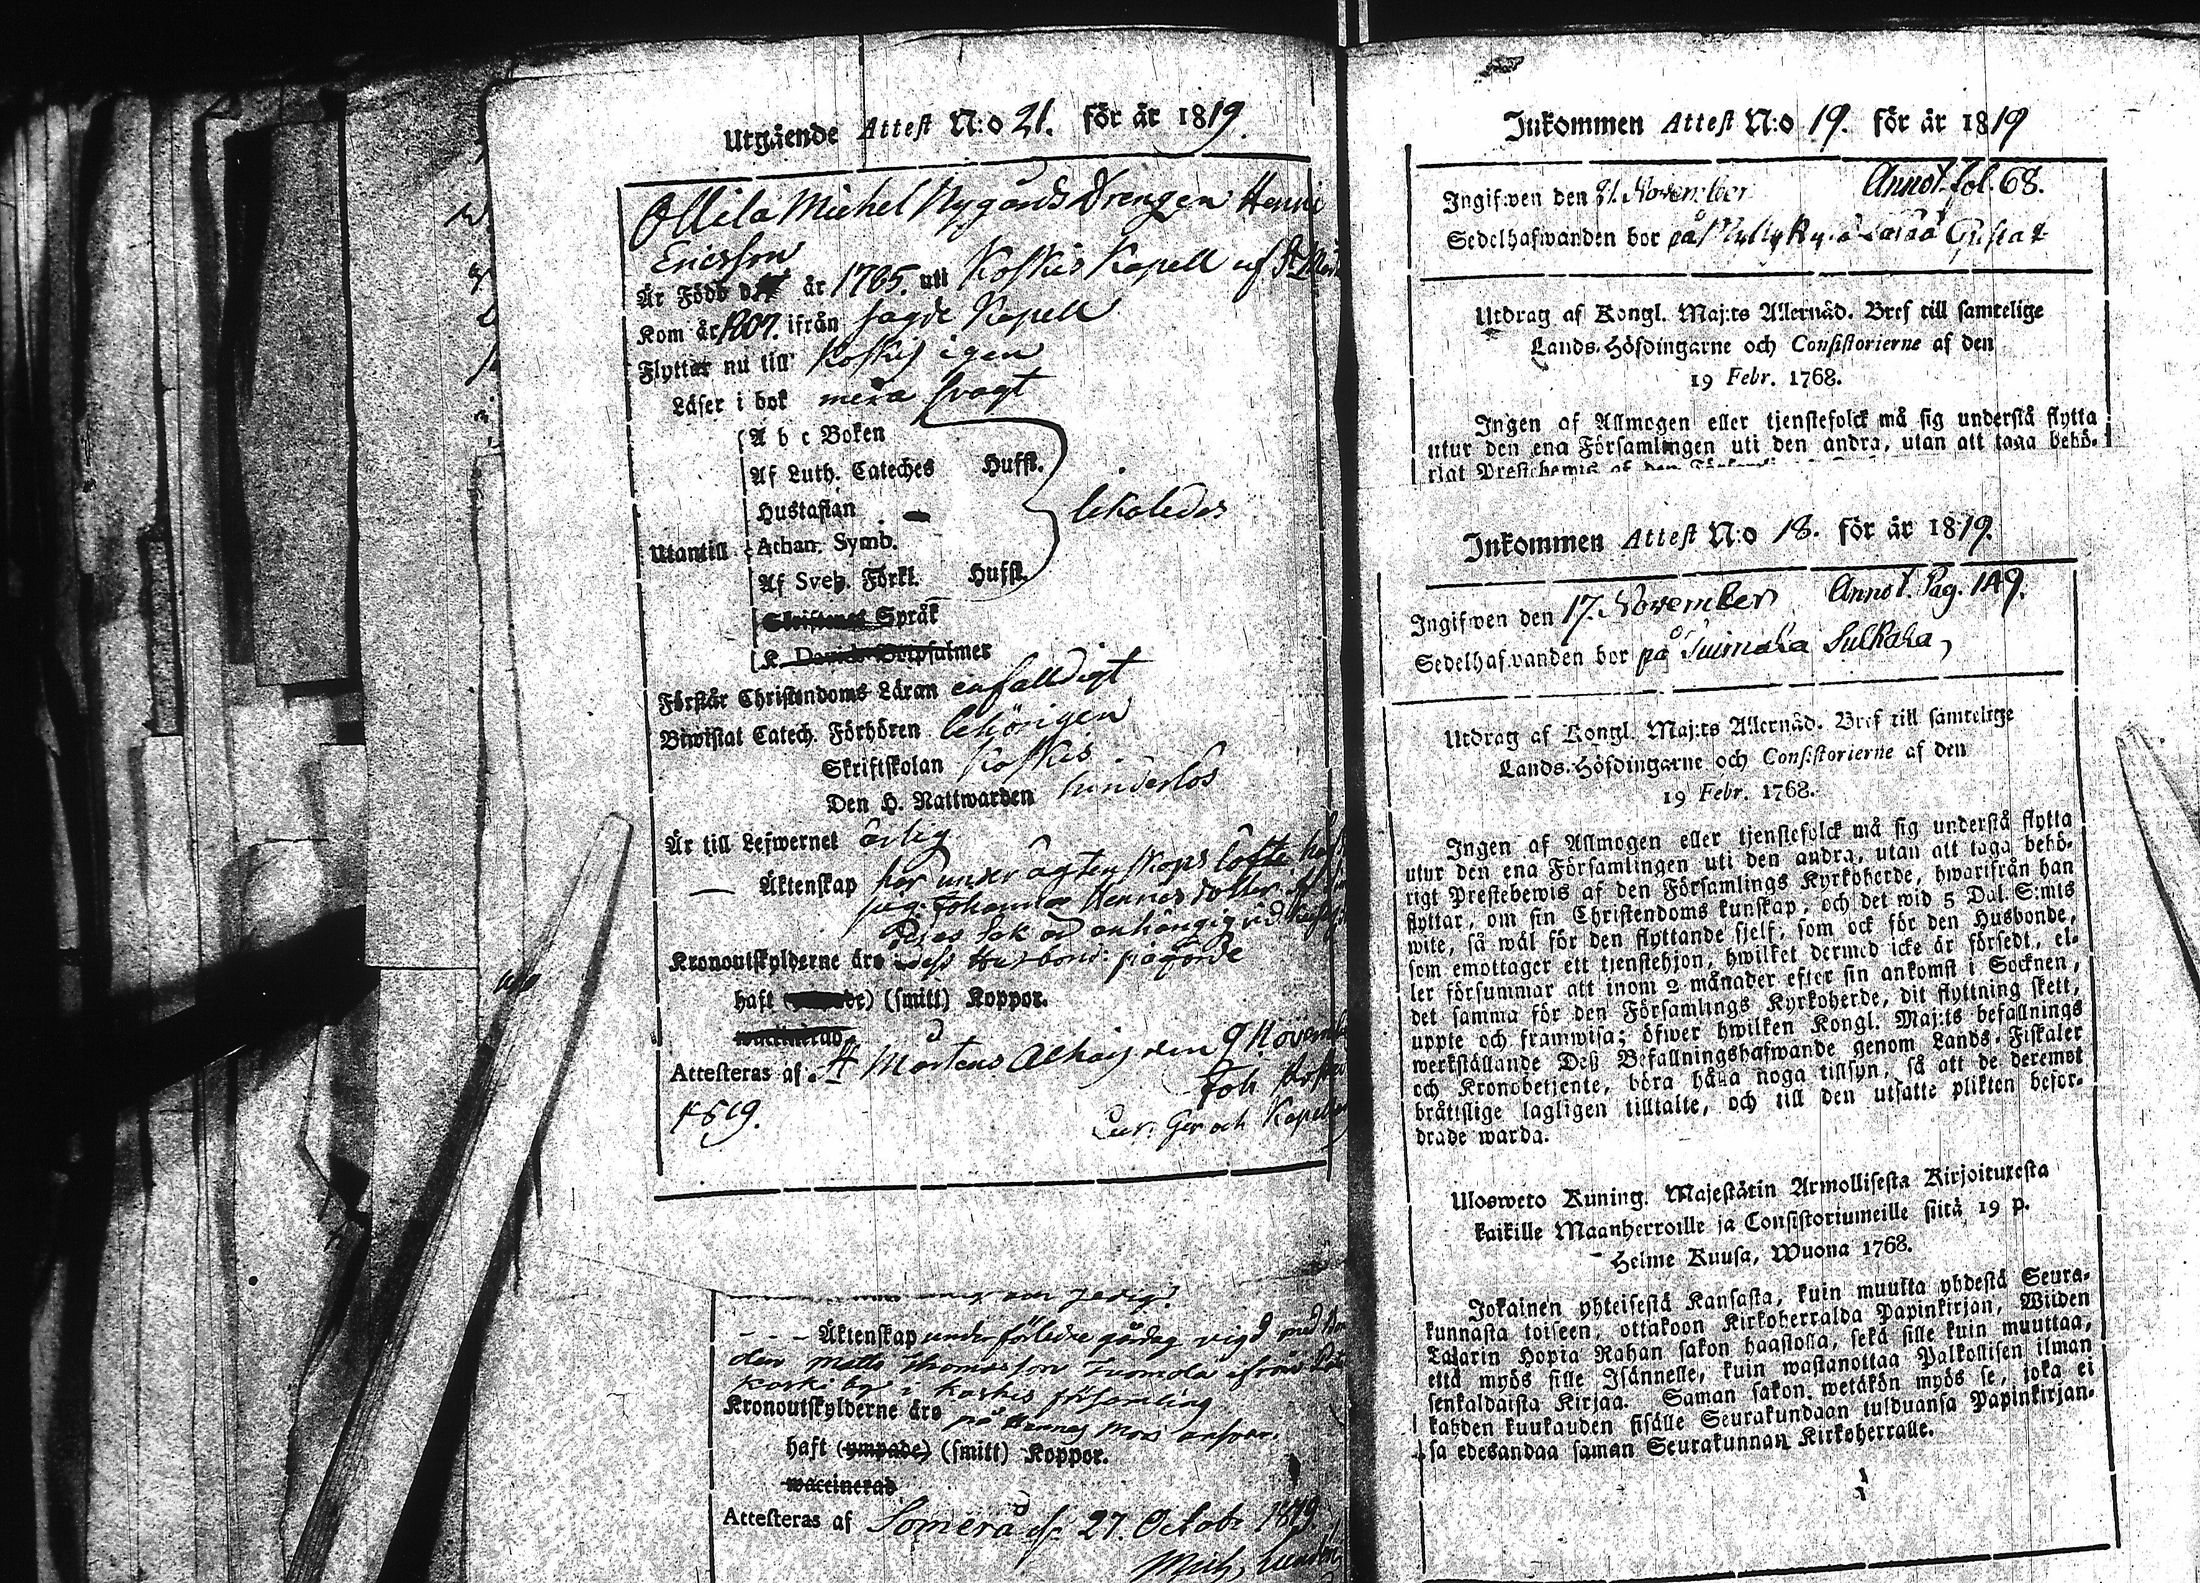 Utgående Attest N:o 21. för år 1819.
Ollila Michel Nygårds Drengen Henric
Ericsson
Är Född d. år 1785. uti Koskis Kapell af St
Kom år 1807. ifrån sagde Kapell
Flyttar nu till Koskis igen
Läser i bok mera svagt
A b c Boken
Af Luth. Cateches Hufst.
Hustaflan
likaledes
Utantill Athan. Symb.
Af Sveb. Förkl. Hufst.
Språk
K. Davids Botpsalmer
Förstår Christendoms Läran enfalldigt
Biwistat Catech. Förhören behörigen
Skriftskolan Koskis
Den H. Nattwarden hinderlös
Är till Lefwernet ärlig
— Äktenskap har under ägtenskaps löfte
pig. Johanna Hennes dotter
sak är anhängig vid
Kronoutskylderne äro dess Husbond: påförde
haft (smitt) Koppor.
waccinerad
Attesteras af St Mårtens den 9 Novemb
1819. Joh
Cur. Ger och Kapellan
- - - Äktenskap under förledne gårdag vigd med
den Matts Thomasson Tuomola ifrån
koski by i Koskis församling
Kronoutskylderne äro på Hennes Mors ansvar.
haft (ympade) (smitt) Koppor.
waccinerad
Attesteras af Somero d. 27. Octobr 1819.
Mich.
Inkommen Attest N:o 19. för år 1819
Ingifwen den 21. November Annot. fol. 68.
Sedelhafwanden bor på Gustaf
Utdrag af Kongl. Maj:ts Allernåd. Bref till samtelige
Lands-Höfdingarne och Consistorierne af den
19 Febr. 1768.
Ingen af Allmogen eller tjenstefolck må sig understå flytta
utur den ena Församlingen uti den andra, utan att taga behö-
rigt Prestebewis af den
Inkommen Attest N:o 18. för år 1819.
Ingifwen den 17. November Annot. Pag. 149.
Sedelhafwanden bor på Tuimala Sulkala,
Utdrag af Kongl. Maj:ts Allernåd. Bref till samtelige
Lands-Höfdingarne och Consistorierne af den
19 Febr. 1768.
Ingen af Allmogen eller tjenstefolck må sig understå flytta
utur den ena Församlingen uti den andra, utan att taga behö-
rigt Prestebewis af den Församlings Kyrkoherde, hwarifrån han
flyttar, om sin Christendoms kunskap, och det wid 5 Dal. S:mts
wite, så wäl för den flyttande sjelf, som ock för den Husbonde,
som emottager ett tjenstehjon, hwilket dermed icke är försedt, el-
ler försummar att inom 2 månader efter sin ankomst i Socknen,
det samma för den Församlings Kyrkoherde, dit flyttning skett,
uppte och framwisa; öfwer hwilken Kongl. Maj:ts befallnings
werkställande Deß Befallningshafwande genom Lands-Fiskaler
och Kronobetjente, böra hålla noga tillsyn, så att de deremot
bråttslige lagligen tilltalte, och till den utsatte plikten befor-
drade warda.
Ulosweto Kuning. Majestätin Armollisesta Kirjoituxesta
kaikille Maanherroille ja Consistoriumeille siitä 19 p.
Helme Kuusa, Wuona 1768.
Jokainen yhteisestä Kansasta, kuin muutta yhdestä Seura-
kunnasta toiseen, ottakoon Kirkoherralda Papinkirjan, Wiiden
Talarin Hopia Rahan sakon haastolla, sekä sille kuin muuttaa,
että myös sille Isännelle, kuin wastanottaa Palkollisen ilman
senkaldaista Kirjaa. Saman sakon wetäkön myös se, joka ei
kahden kuukauden sisälle Seurakundaan tulduansa Papinkirjan-
sa edesandaa saman Seurakunnan Kirkoherralle.